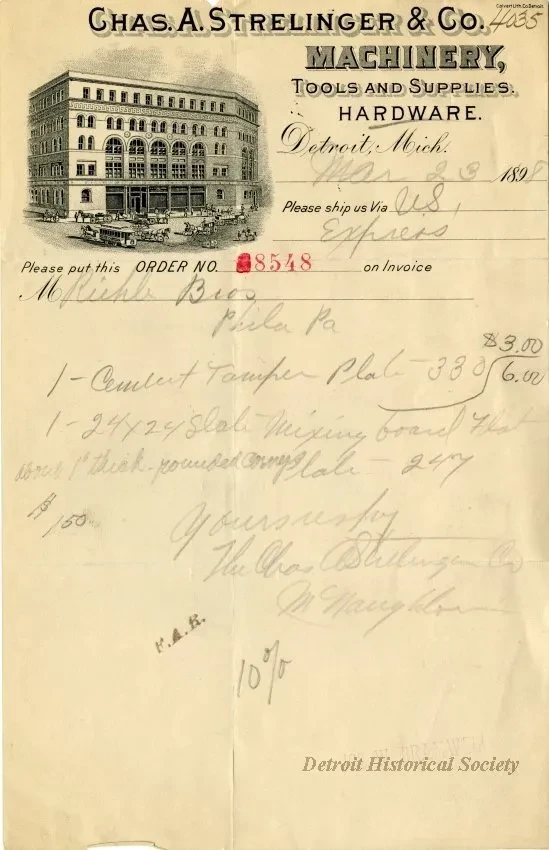 Calvert Lith. Co. Detroit.
CHAS. A. STRELINGER & CO. 4035
MACHINERY,
TOOLS AND SUPPLIES.
HARDWARE.
Detroit, Mich.
Mar 23 1898
Please ship us Via U.S.
Express
Please put this ORDER NO. 8548 on Invoice
M Riehle Bros
Phila Pa
$3.00
1 - Cement Tamper Plate - 330 6.00
1 - 24x24 Slate Mixing board Flat
about 1" thick - rounded corners Plate - 247
$1.50
Yours resp'y
The Chas A Strelinger Co
McNaughton
F.A.R.
10%
Detroit Historical Society